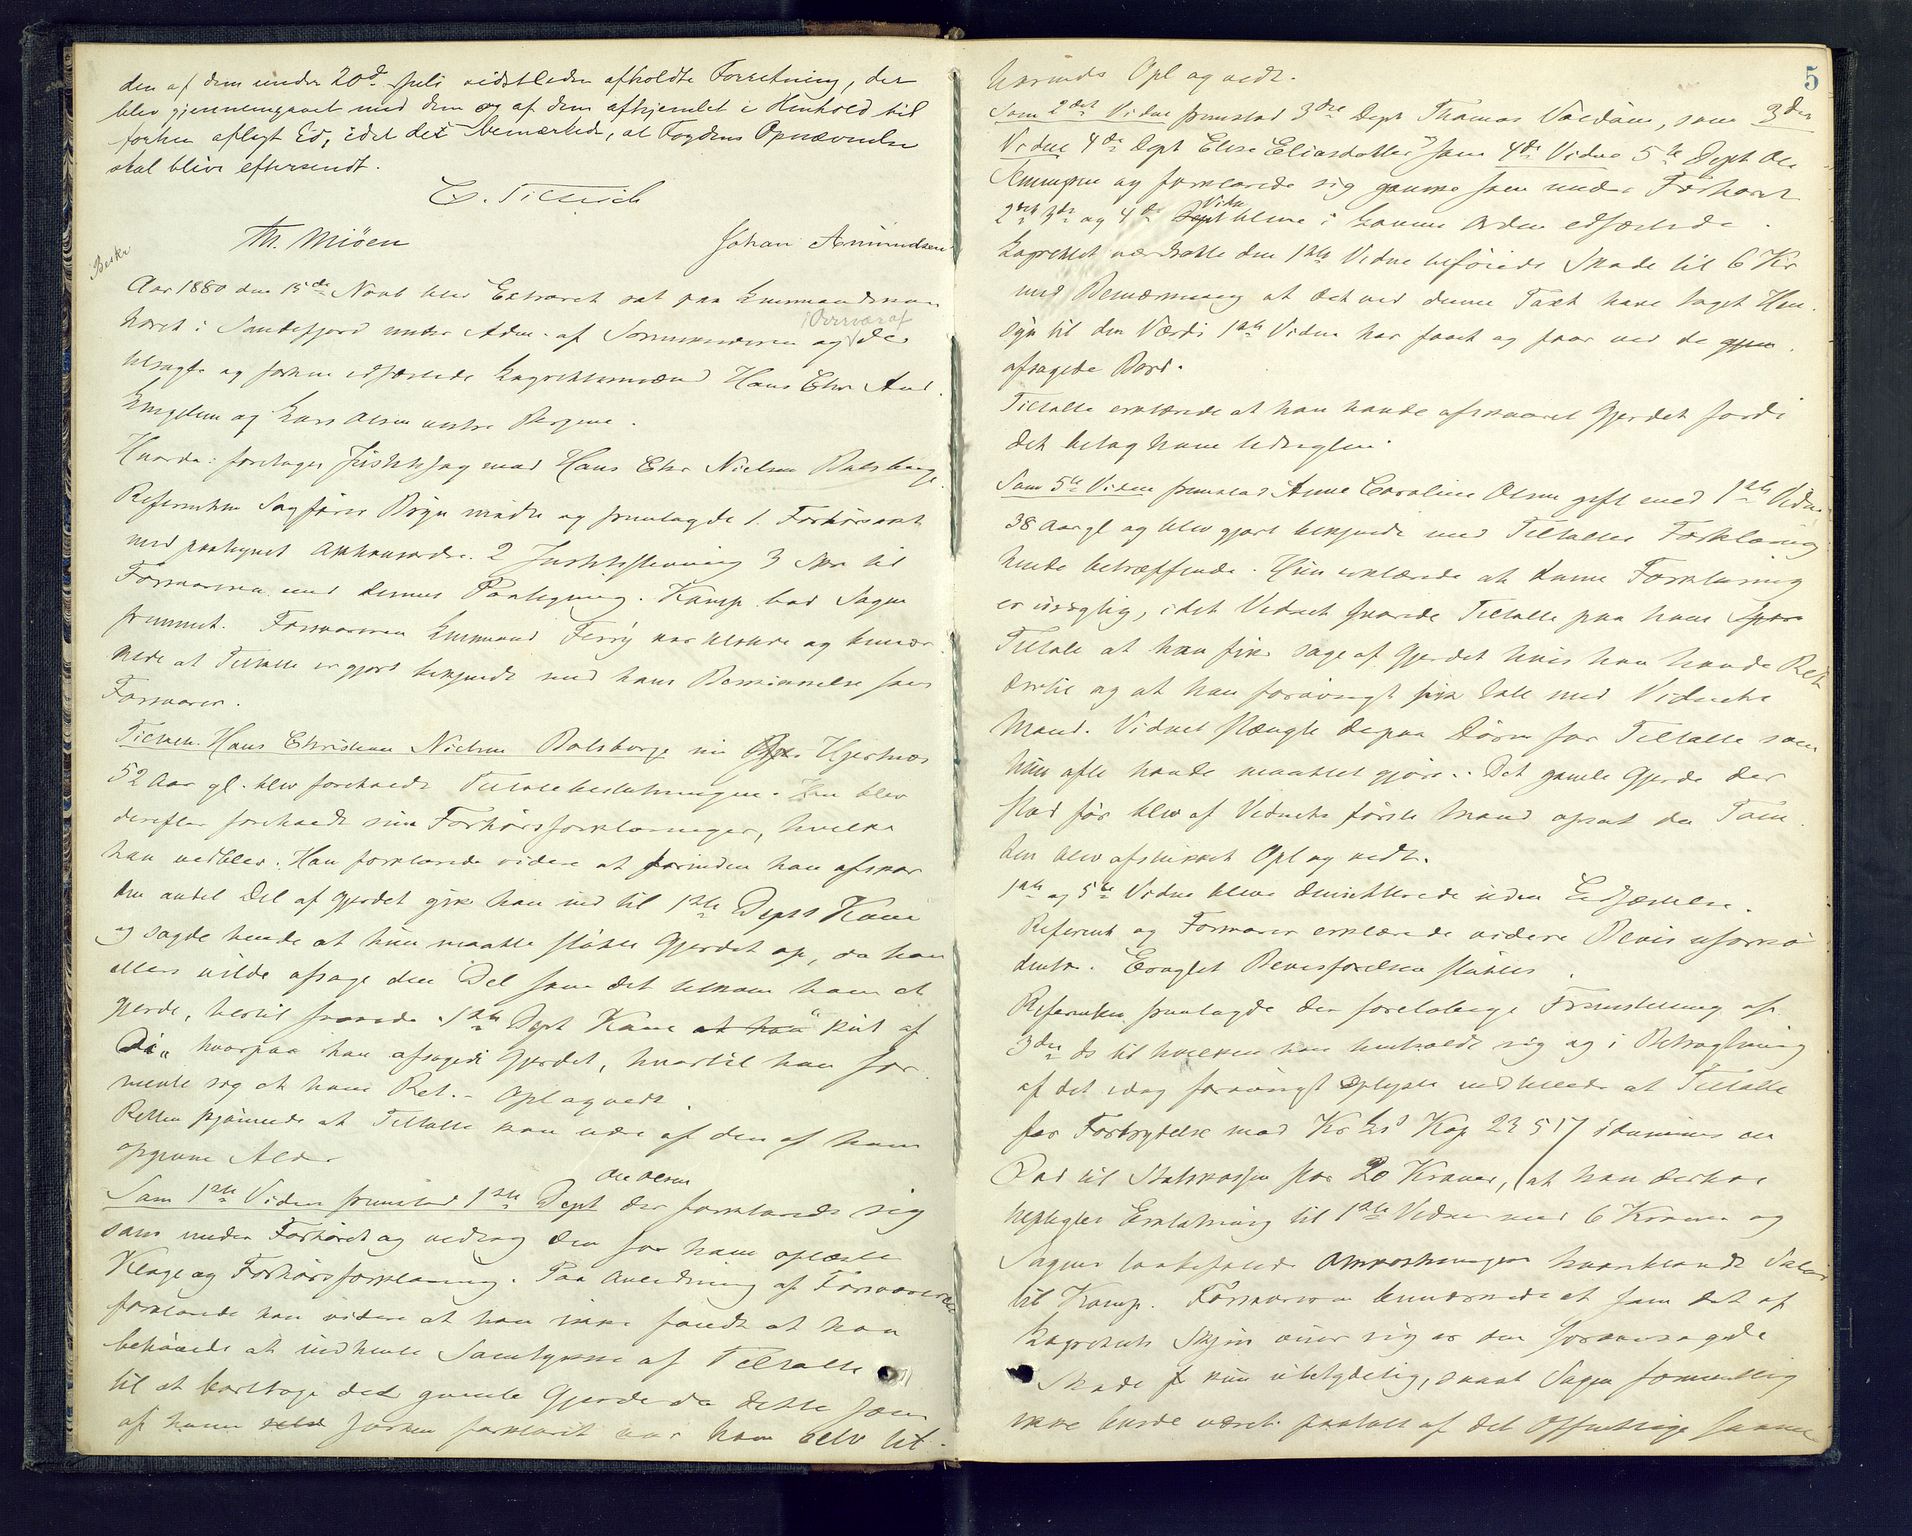 den af dem under 20de Juli sidstleden afholdte Forretning, der
blev gjennemgaaet med dem og af dem afhjemlet i Henhold til
forhen aflagt Ed, idet det bemærkede, at Fogdens Opnævnelse
skal blive eftersendt.
Th. Miöen Johan Amundsen
Aar 1880 den 15de Novb blev Extraret sat paa Lensmandskon
toret i Sandefjord under Adm. af Sorenskriveren og Overvær af de
tilsagte og forhen edfæstede Lagrettesmænd Hans Chr And.
Engelsen og Lars Olsen vestre
Hvorda: foretoges Justitssag mod Hans Chr Nielsen Bolsberge
Referenten Sagfører Bryn mødte og fremlagde 1. Forhørsakt
med paategnet Aktionsordre. 2 Justitsstevning 3 Skr til
Forsvareren med dennes Paategning. Komp. bad Sagen
fremmet. Forsvareren Lensmand var tilstede og bemær
kede at Tiltalte er gjort bekjendt med hans Beskikkelse som
Forsvarer.
Tiltalte Hans Christian Nielsen Bolsberge nu Hjertnæs
52 Aar gl. blev foreholdt Tiltalebeslutningen. Han blev
derefter foreholdt sine Forhørsforklaringer, hvilke
han vedblev. Han forklarede videre at forinden han afskar
den andel Del af Gjerdet gik han ind til 1ste Depts Kone
og sagde hende at hun maatte flytte Gjerdet op, da han
ellers vilde afsage den Del som det tilkom ham at
gjerde, hertil svarede 1ste Dept Kone at han "kut af
Di" hvorpaa han afsagede Gjerdet, hvortil han for
mente sig at have Ret. - Opl og vedt.
Retten skjønnede at Tiltalte kan være af den af ham
opgivne Alder
Som 1ste Vidne fremstod 1ste Dept Ole Olsen der forklarede sig
som under Forhøret og vedtog den for ham oplæste
Klage og Forhørsforklaring. Paa Anledning af Forsvareren
forklarede han videre at han ikke fandt at han
behøvede at indhente Samtykke af Tiltalte
til at borttage det gamle Gjerde da dette som
af ham forhen forklaret var ham blev til
5
Opl og vedt.
Som 2det Vidne fremstod 3die Dept Thomas, som 3die
Vidne 4de Dept Elise Eliasdatter, som 4de Vidne 5te Dept Ole
og forklarede sig ganske som under Forhøret
2det 3die og 4de Vidne bleve i Lovens Orden edfæstede.
Lagrettet værdsatte den 1ste Vidne tilføiede Skade til 6 Kr
med Bemærkning at det ved denne Taxt have taget Hen
syn til den Værdi 1ste Vidne har faaet og faar ved de
afsagede Bord.
Tiltalte erklærede at han havde afskaaret Gjerdet fordi
det betog ham Udsigten.
Som 5te Vidne fremstod Anne Caroline Olsen gift med 1ste Vidne
38 Aar gl og blev gjort bekjendt med Tiltaltes Forklaring
hende betræffende. Hun erklærede at denne Forklaring
er urigtig, idet Vidnet svarede Tiltalte paa hans
Tiltale at han fik sage af Gjerdet hvis han havde Ret
dertil og at han forøvrigt fik tale med Vidnets
Mand. Vidnet stængte derpaa Døren for Tiltalte som
hun ofte havde maattet gjøre. Det gamle Gjerde der
stod før blev af Vidnets første Mand opsat da Tom
ten blev afstukket Opl og vedt.
1ste og 5te Vidne bleve demitterede uden Edfæstelse.
Referent og Forsvarer erklærede videre Bevis ufornø
dent. Eragtet Bevisførelsen sluttes.
Referenten fremlagde den foreløbige Fremstilling af
3die ds til hvilken han henholdt sig og i Betragtning
af det idag forøvrigt oplyste indstillede at Tiltalte
for Forbrydelse mod Kr Ls Kap 22 § 17 idømmes en
Bod til Statskassen stor 20 Kroner, at han derhos
tilpligtes Erstatning til 1ste Vidne med 6 Kroner og
Sagens lovbefalede Omkostninger hvoriblandt Salær
til Komp. Forsvareren bemærkede at som det af
Lagrettets Skjøn viser sig er den foraarsagede
Skade kun ubetydelig, saaat Sagen formentlig
ikke burde været paatalt af det Offentlige